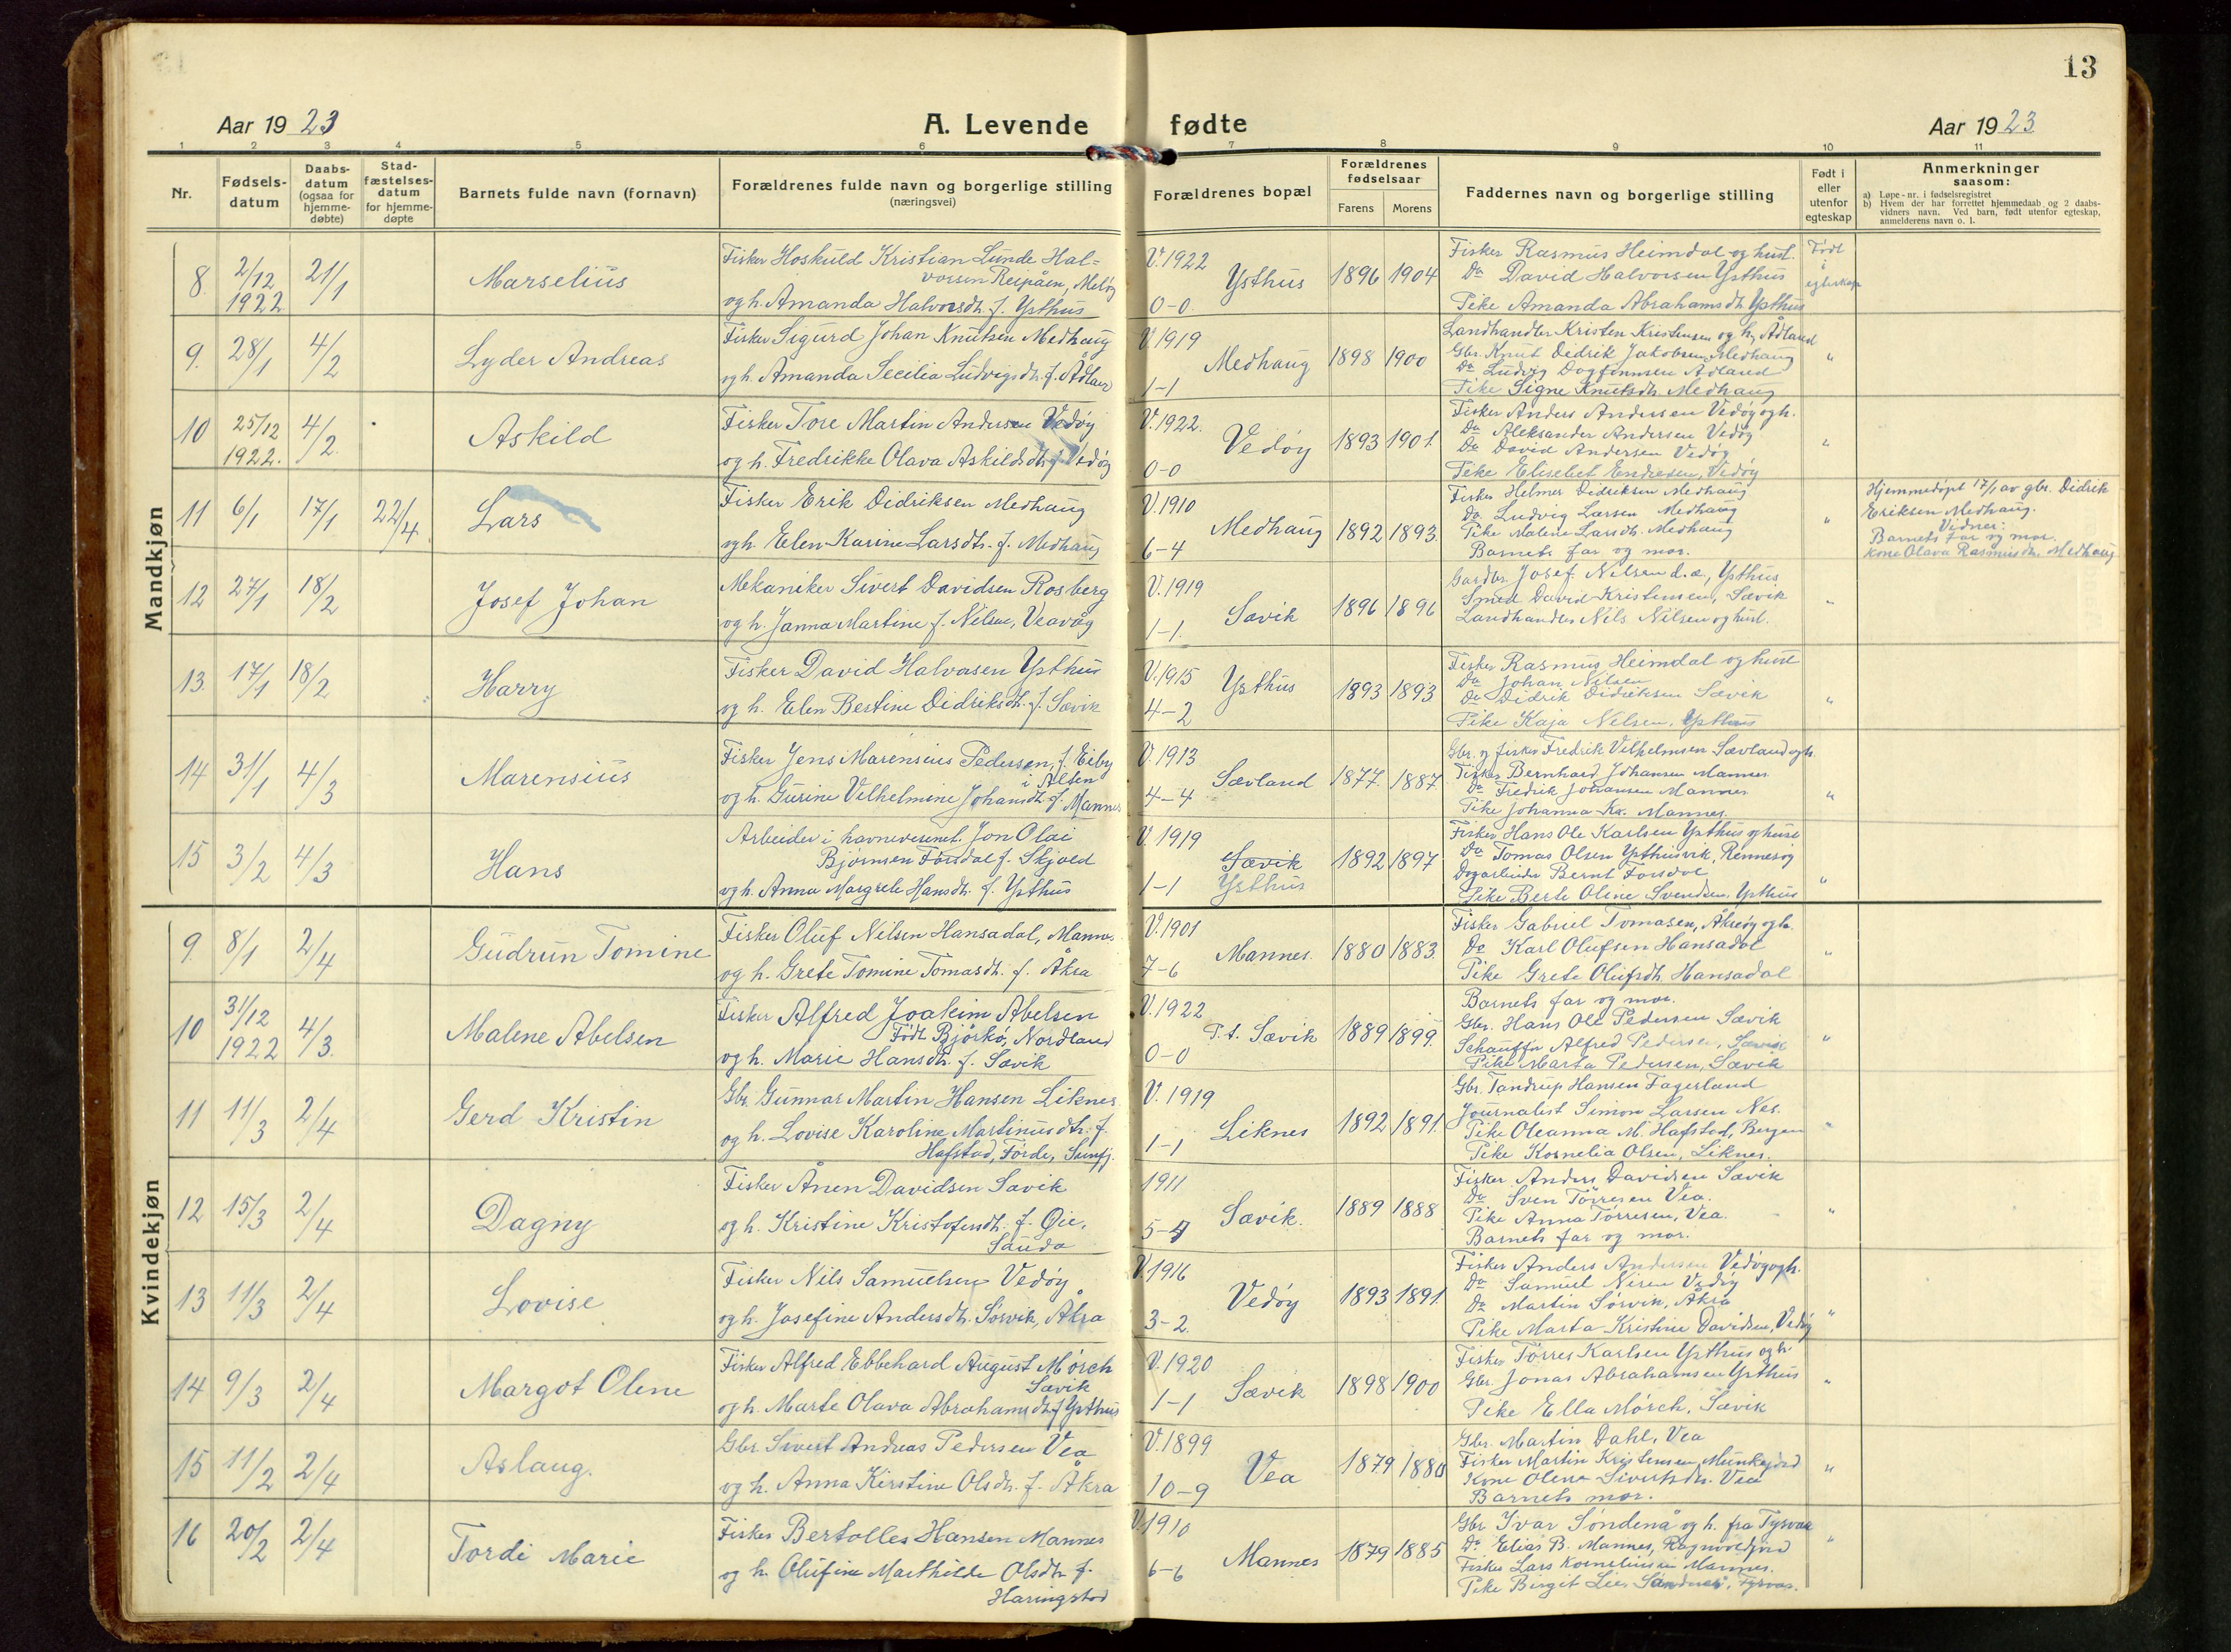 13
Aar 1923 A. Levende fødte Aar 1923
1 2 3 4 5 6 7 8 9 10 11
Nr.
Fødsels-
datum
Daabs-
datum
(ogsaa for
hjemme-
døbte)
Stad-
fæstelses-
datum
for hjemme-
døpte
Barnets fulde navn (fornavn)
Forældrenes fulde navn og borgerlige stilling
(næringsvei)
Forældrenes bopæl
Forældrenes
fødselsaar
Farens Morens
Faddernes navn og borgerlige stilling
Født i
eller
utenfor
egteskap
Anmerkninger
saasom:
a) Løpe-nr. i fødselsregistret
b) Hvem der har forrettet hjemmedaab og 2 daabs-
vidners navn. Ved barn, født utenfor egteskap,
anmelderens navn o. l.
Mandkjøn
8. 2/12 1922 21/1 Marselius
Fisker Hoskuld Kristian Lunde Hal=
vorsen Reipåen, Meløy
og h. Amanda Halvorsdtr. f. Ysthus
V. 1922
0-0.
Ysthus 1896 1904
Fisker Rasmus Heimdal og hust.
Do David Halvorsen Ysthus
Pike Amanda Abrahamsdtr. Ysthus
Født
i
egteskap
9. 28/1 4/2 Lyder Andreas
Fisker Sigurd Johan Knutsen Medhaug
og h. Amanda Secilia Ludvigsdtr. f. Ådland
V. 1919
1-1
Medhaug 1898 1900
Landhandler Kristen Kristensen og h, Ådland
Gbr. Knut Didrik Jakobsen, Medhaug
Do Ludvig Dagfinnsen Adland
Pike Signe Knutsdtr. Medhaug
"
10 25/12 1922. 4/2. Askild
Fisker Tore Martin Andersen Vedøy
og h. Fredrikke Olava Askildsdtr. f. Vedøy
V. 1922.
0-0
Vedøy 1893 1901.
Fisker Anders Andersen Vedøy og h.
Do Aleksander Andersen Vedøy
Do David Andersen Vedøy
Pike Elisebet Endresen, Vedøy
"
11 6/1 17/1 22/4 Lars
Fisker Erik Didriksen Medhaug
og h. Elen Karine Larsdtr. f. Medhaug
V. 1910
6-4
Medhaug 1892 1893
Fisker Helmer Didriksen Medhaug
Do Ludvig Larsen Medhaug
Pike Malene Larsdtr. Medhaug
Barnets far og mor.
"
Hjemmedøpt 17/1 av gbr. Didrik
Eriksen Medhaug.
Vidner:
Barnets far og mor.
Kone Olava Rasmusdtr. Medhaug
12 27/1 18/2 Josef Johan
Mekaniker Sivert Davidsen Rosberg
og h. Janna Martine f. Nilsen, Veavåg
V. 1919
1-1.
Sævik 1896 1896
Gardbr. Josef Nilsen d.e., Ysthus
Smed David Kristensen, Sævik
Landhandler Nils Nilsen og hust.
"
13. 17/1 18/2 Harry
Fisker David Halvorsen Ysthus
og h. Elen Bertine Didriksdtr. f. Sævik
V. 1915
4-2
Ysthus 1893 1893
Fisker Rasmus Heimdal og hust
Do Johan Nilsen
Do Didrik Didriksen Sævik
Pike Kaja Nilsen, Ysthus
"
14 31/1 4/3 Marensius
Fisker Jens Marensius Pedersen, f. Eiby
i Alten
og h. Gurine Velhelmine Johansdtr. f. Mannes
V. 1913
4-4
Sævland 1877. 1887
Gbr. og fisker Fredrik Vilhelmsen Sævland og h.
Fisker Bernhard Johansen Mannes
Do Fredrik Johansen Mannes
Pike Johanna Kr. Mannes.
"
15 3/2 4/3 Hans
Arbeider i havnevesenet Jon Olai
Bjørnsen Førsdal f. Skjold
og h. Anna Margrete Hansdtr. f. Ysthus
V. 1919
1-1
Sævik
Ysthus
1892 1897
Fisker Hans Ole Karlsen Ysthus og hust
Do Tomas Olsen Ysthusvik, Rennesøy
Dagarbeider Bernt Førsdal
Pike Berte Oline Svendsen, Ysthus
"
Kvindekjøn
9 8/1 2/4 Gudrun Tomine
Fisker Oluf Nilsen Hansadal, Mannes
og h. Grete Tomine Tomasdtr. f. Åkra
V. 1901
7-6
Mannes. 1880 1883.
Fisker Gabriel Tomasen, Åkrøy og h.
Do Karl Olufsen Hansadal
Pike Grete Olufsdtr. Hansadal
"
10 31/12 1922 4/3. Malene Abelsen
Fisker Alfred Joakim Abelsen
Født Bjørkø, Nordland
og h. Marie Hansdtr. f. Sævik
V. 1922
0-0
P. t. Sævik 1889 1899.
Barnets far og mor.
Gbr. Hans Ole Pedersen Sævik
Schauffør Alfred Pedersen, Sævik
Pike Marta Pedersen, Sævik
"
11 11/3 2/4 Gerd Kristin
Gbr. Gunnar Martin Hansen Liknes.
og h. Lovise Karoline Martinusdtr. f.
Hafstad, Førde, Sunfj.
V. 1919
1-1
Liknes 1892 1891.
Gbr. Tandrup Hansen Fagerland
Journalist Simon Larsen Nes.
Pike Oleanna M. Hafstad, Bergen
Pike Kornelia Olsen, Liknes.
"
12 15/3 2/4 Dagny
Fisker Ånen Davidsen Sævik
og h. Kristine Kristofersdtr. f. Øie,
Sauda
1911
5-4
Sævik. 1889 1888
Fisker Anders Davidsen Sævik
Do Sven Tørresen Vea.
Pike Anna Tørresen, Vea.
Barnets far og mor.
"
13 11/3 2/4 Lovise
Fisker Nils Samuelsen Vedøy
og h. Josefine Andersdtr. Sørvik, Åkra
V. 1916
3-2.
Vedøy 1893 1891.
Fisker Anders Andersen Vedøy og h.
Do Samuel Vedøy
Do Martin Sørvik, Åkra
Pike Marta Kristine Davidsen, Vedøy
"
14 9/3 2/4 Margot Olene
Fisker Alfred Ebbehard August Mørch
Sævik
og h. Marte Olava Abrahamsdtr. f. Ysthus
V. 1920
1-1
Sævik 1898 1900
Fisker Tørres Karlsen Ysthus og h.
Gbr. Jonas Abrahamsen Ysthus
Pike Ella Mørch, Sævik
"
15 11/2 2/4 Aslaug.
Gbr Sivert Andreas Pedersen Vea
og h. Anna Kirstine Olsdtr. f. Åkra
V. 1899
10-9
Vea 1879 1880
Gbr. Martin Dahl, Vea
Fisker Martin Kristensen, Munkejord
Kone Olene Sivertsdtr. Vea
Barnets mor.
"
16 20/2 2/4 Tordi Marie
Fisker Bertolles Hansen Mannes
og h. Olufine Marthilde Olsdtr. f.
Haringstad
V. 1910
6-6
Mannes 1879 1885
Gbr Ivar Søndenå og h. fra Tysvær
Do Elias B. Mannes, Ragnvaldjord
Fisker Lars Korneliussen Mannes.
Pike Birgit Lies , Tysvær.
"